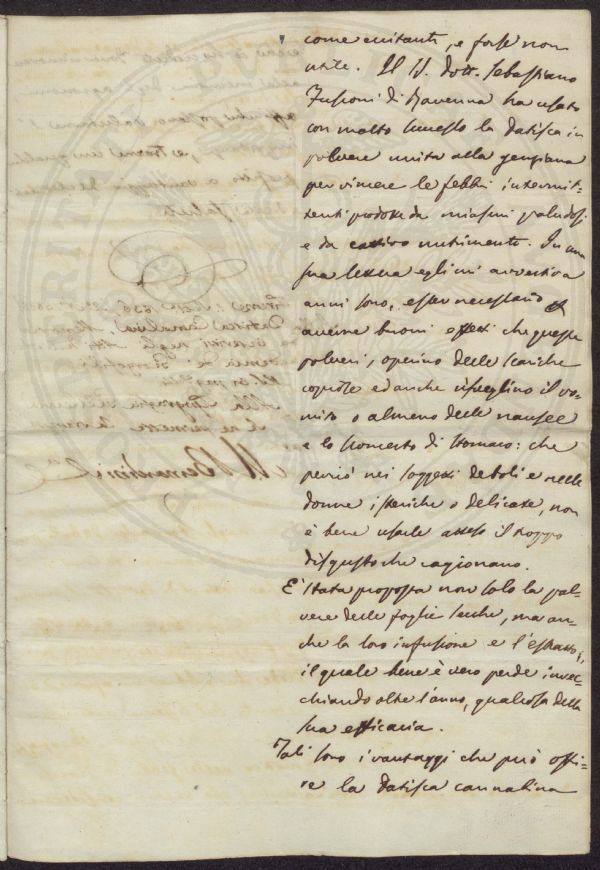 come irritanti, e forse non
utile. Il S. Dott. Sebastiano
Fusconi di Ravenna ha usato
con molto successo la Datisca in
polvere unita alla genziana
per vincere le febbri intermit-
tenti prodotte da miasmi paludosi
e da cattivo nutrimento. In una
sua lettera egli mi avvertiva
anni sono, esser necessario
averne buoni effetti che queste
polveri, operino delle scariche
copiose ed anche risveglino il vo-
mito o almeno delle nausee
e lo sconcerto di stomaco: che
perciò nei soggetti deboli e nelle
donne isteriche o delicate, non
è bene usarle atteso il troppo
disgusto che cagionano.
È stata proposta non solo la pol-
vere delle foglie secche, ma an-
che la loro infusione e l'estratto,
il quale bene è vero perde invec-
chiando oltre l'anno, qualcosa della
sua efficacia.
Tali sono i vantaggi che può offri-
re la Datisca cannabina